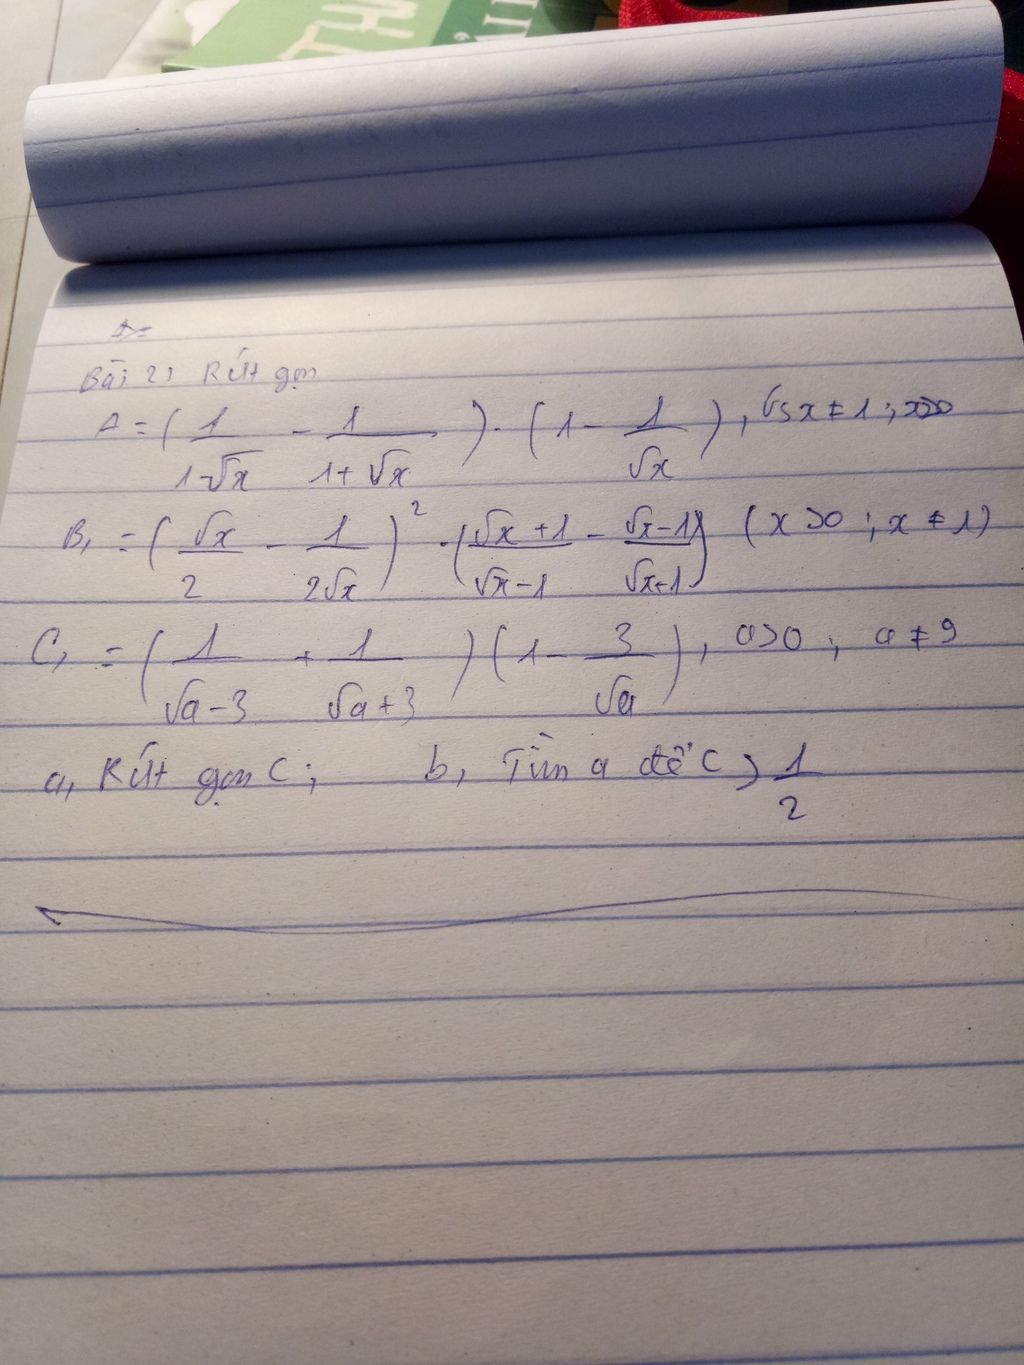 TH
A=
Bài 2: Rút gọn
A = ( 1/(1-√x) - 1/(1+√x) ) . ( 1 - 1/√x ), Với x ≠ 1 ; x>0
B, = ( √x/2 - 1/(2√x) )² . ( (√x+1)/(√x-1) - (√x-1)/(√x+1) ) (x>0 ; x ≠ 1)
C, = ( 1/(√a-3) + 1/(√a+3) ) ( 1 - 3/√a ), a>0 ; a ≠ 9
a, Rút gọn C ; b, Tìm a để C > 1/2